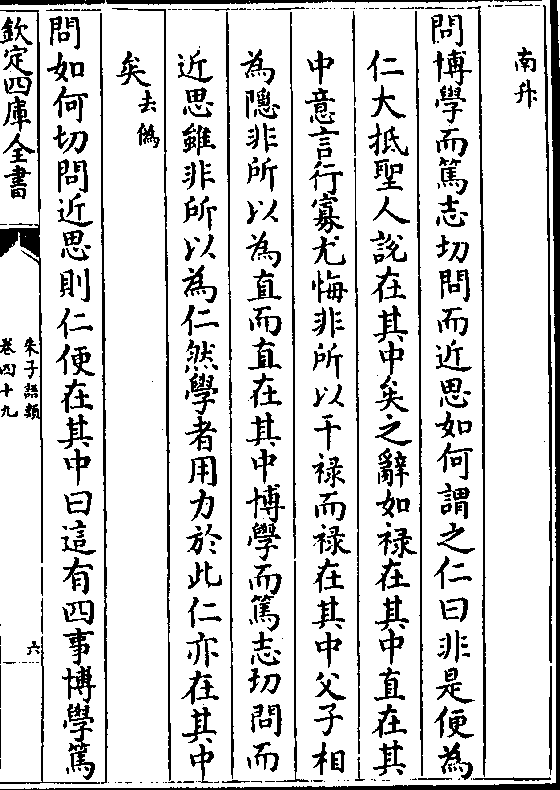 南升
問博學而篤志切問而近思如何謂之仁曰非是便為
仁大抵聖人說在其中矣之辭如禄在其中直在其
中意言行寡尤悔非所以干禄而禄在其中父子相
為隱非所以為直而直在其中博學而篤志切問而
近思雖非所以為仁然學者用力於此仁亦在其中
矣去偽
問如何切問近思則仁便在其中曰這有四事博學篤
欽定四庫全書
朱子語類
卷四十九
六